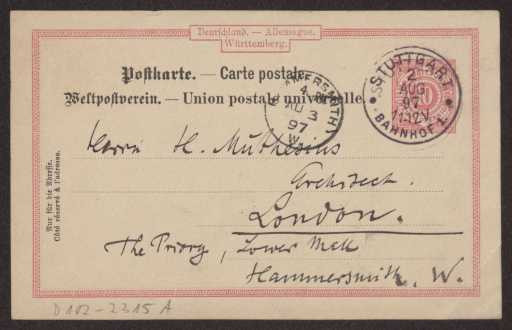 Deutschland. — Allemagne.
Württemberg.
Postkarte. — Carte postale.
Weltpostverein. — Union postale universelle.
STUTTGART
2
AUG
97
11-12V.
BAHNHOF 1.
HAMMERSMITH
AU 3
97
W
Nur für die Adresse.
Côté réservé à l'adresse.
Herrn H. Muthesius
Architect.
London.
The Priory, Lower Mall
Hammersmith. W.
D 102-2315 A